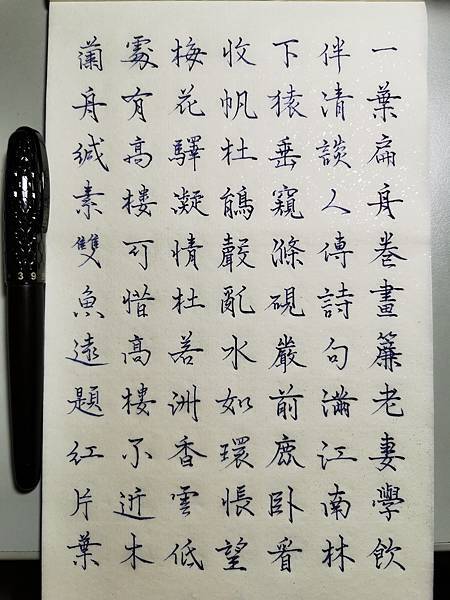 一葉扁舟卷畫簾老妻學飲
伴清談人傳詩句滿江南林
下猿垂窺滌硯嚴前鹿臥看
收帆杜鵑聲亂水如環悵望
梅花驛凝情杜若洲香雲低
處有高樓可惜高樓不近木
蘭舟緘素雙魚遠題紅片葉